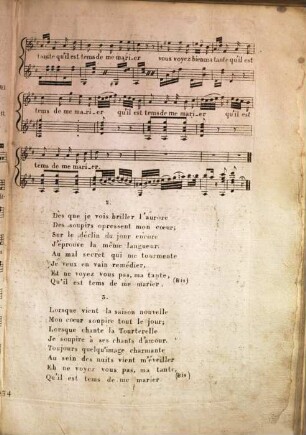 tante qu'il est tems de me mari_er vous voyez bien ma tante qu'il est
tems de me ma_ri_er qu'il est tems de me mari_er qu'il est
tems de me mari_er.
2.
Dès que je vois briller l'aurore
Des soupirs opressent mon cœur,
Sur le déclin du jour encore
J'éprouve la même langueur.
Au mal secret qui me tourmente
Je veux en vain remédier,
Eh ne voyez vous pas, ma tante,
Qu'il est tems de me marier. (Bis)
3.
Lorsque vient la saison nouvelle
Mon cœur soupire tout le jour;
Lorsque chante la Tourterelle
Je soupire à ses chants d'amour.
Toujours quelqu'image charmante
Au sein des nuits vient m'éveiller
Eh ne voyez vous pas, ma tante,
Qu'il est tems de me marier (Bis)